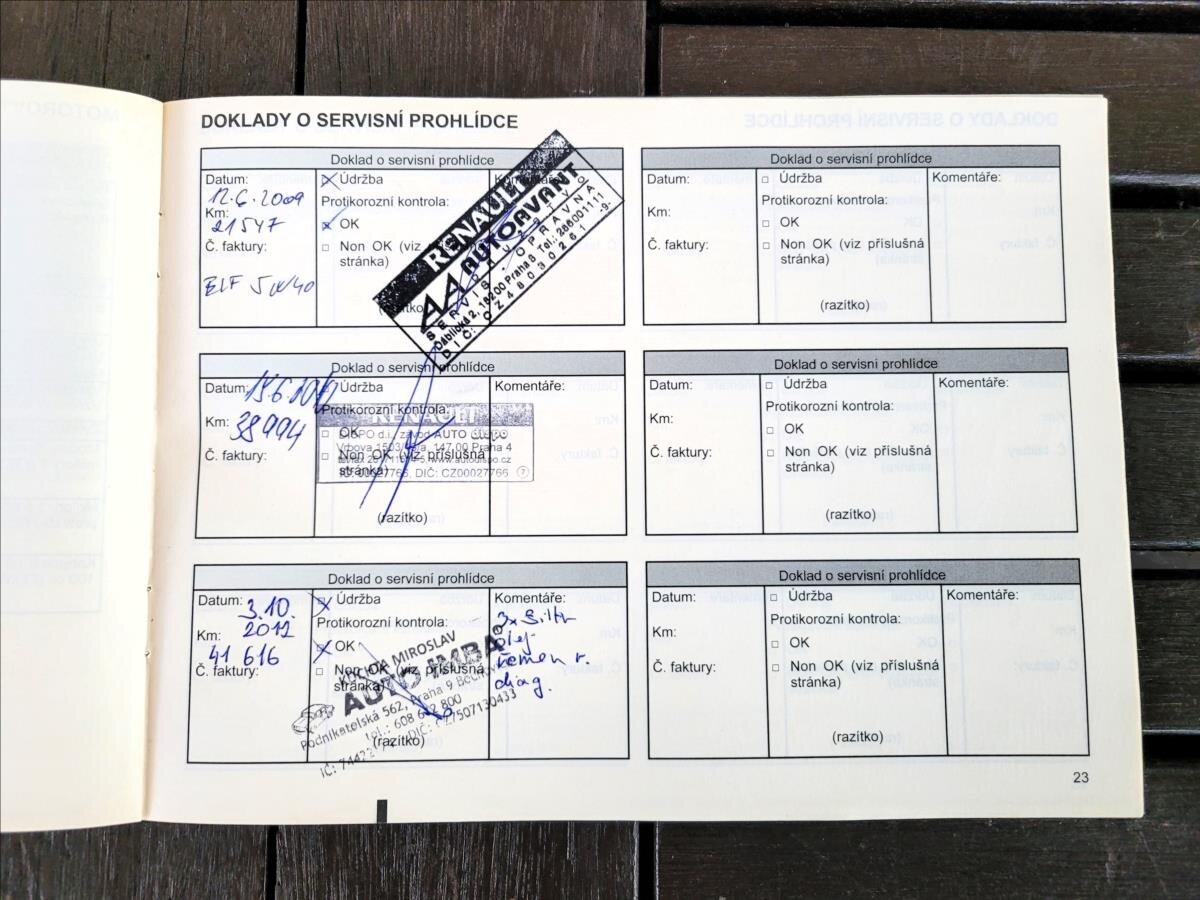 DOKLADY O SERVISNÍ PROHLÍDCE
Doklad o servisní prohlídce
Datum:
12.6.2009
Km:
21547
Č. faktury:
ELF 5W40
Údržba
Protikorozní kontrola:
OK
Non OK (viz příslušná
stránka)
(razítko)
Komentáře:
RENAULT
AA AUTOAVANT
SERVIS
OPRAVNA
Ďáblická 2, 18200 Praha 8 Tel.: 286001111
DIČ: CZ48030261
-9-
Doklad o servisní prohlídce
Datum: 15.6.2010
Km:
38994
Č. faktury:
Údržba
Protikorozní kontrola:
OK
Non OK (viz příslušná
stránka)
(razítko)
Komentáře:
RENAULT
DISPO d.i., závod AUTO DISPO
147 00 Praha 4
www.autodispo.cz
IČ: 00027766, DIČ: CZ00027766
Doklad o servisní prohlídce
Datum:
3.10.
2012
Km:
41 616
Č. faktury:
Údržba
Protikorozní kontrola:
OK
Non OK (viz příslušná
stránka)
(razítko)
Komentáře:
3x filtr
olej
řemen r.
diag.
MIROSLAV
AUTO JIMBA
Podnikatelská 562, Praha 9 Běchovice
Doklad o servisní prohlídce
Datum:
Km:
Č. faktury:
Údržba
Protikorozní kontrola:
OK
Non OK (viz příslušná
stránka)
(razítko)
Komentáře:
Doklad o servisní prohlídce
Datum:
Km:
Č. faktury:
Údržba
Protikorozní kontrola:
OK
Non OK (viz příslušná
stránka)
(razítko)
Komentáře:
Doklad o servisní prohlídce
Datum:
Km:
Č. faktury:
Údržba
Protikorozní kontrola:
OK
Non OK (viz příslušná
stránka)
(razítko)
Komentáře:
23